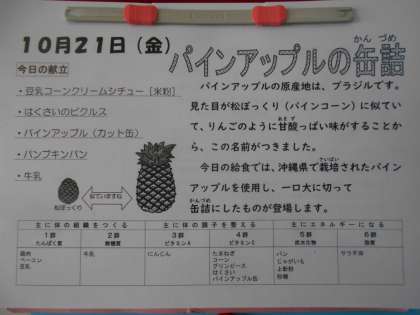 10月21日（金）
パインアップルの缶詰
かん づめ
今日の献立
・豆乳コーンクリームシチュー［米粉］
・はくさいのピクルス
・パインアップル（カット缶）
・パンプキンパン
・牛乳
松ぼっくり
似ていますね
パインアップルの原産地は、ブラジルです。
見た目が松ぼっくり（パインコーン）に似てい
て、りんごのように甘酸っぱい味がすることか
ら、この名前がつきました。
今日の給食では、沖縄県で栽培されたパイン
アップルを使用し、一口大に切って
缶詰にしたものが登場します。
主に体の組織をつくる 主に体の調子を整える 主にエネルギーになる
1群 2群 3群 4群 5群 6群
たんぱく質 無機質 ビタミンA ビタミンC 炭水化物 脂質
鶏肉 牛乳 にんじん たまねぎ パン サラダ油
ベーコン コーン じゃがいも
豆乳 グリンピース 上新粉
はくさい 砂糖
パインアップル缶